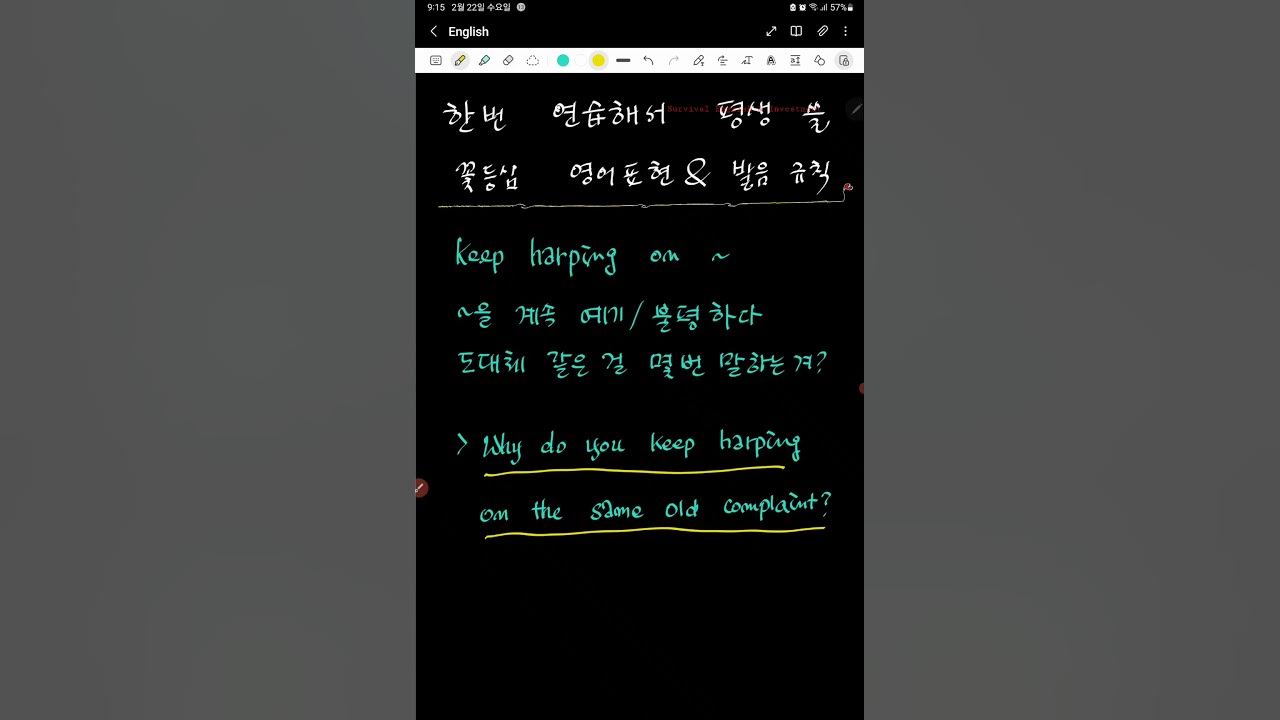 9:15 2월 22일 수요일 57%
English
한번 연습해서 평생 쓸
Survival
꽃등심 영어표현 & 발음 규칙
keep harping on ~
~을 계속 얘기/불평하다
도대체 같은 걸 몇번 말하는겨?
> Why do you keep harping
on the same old complaint?